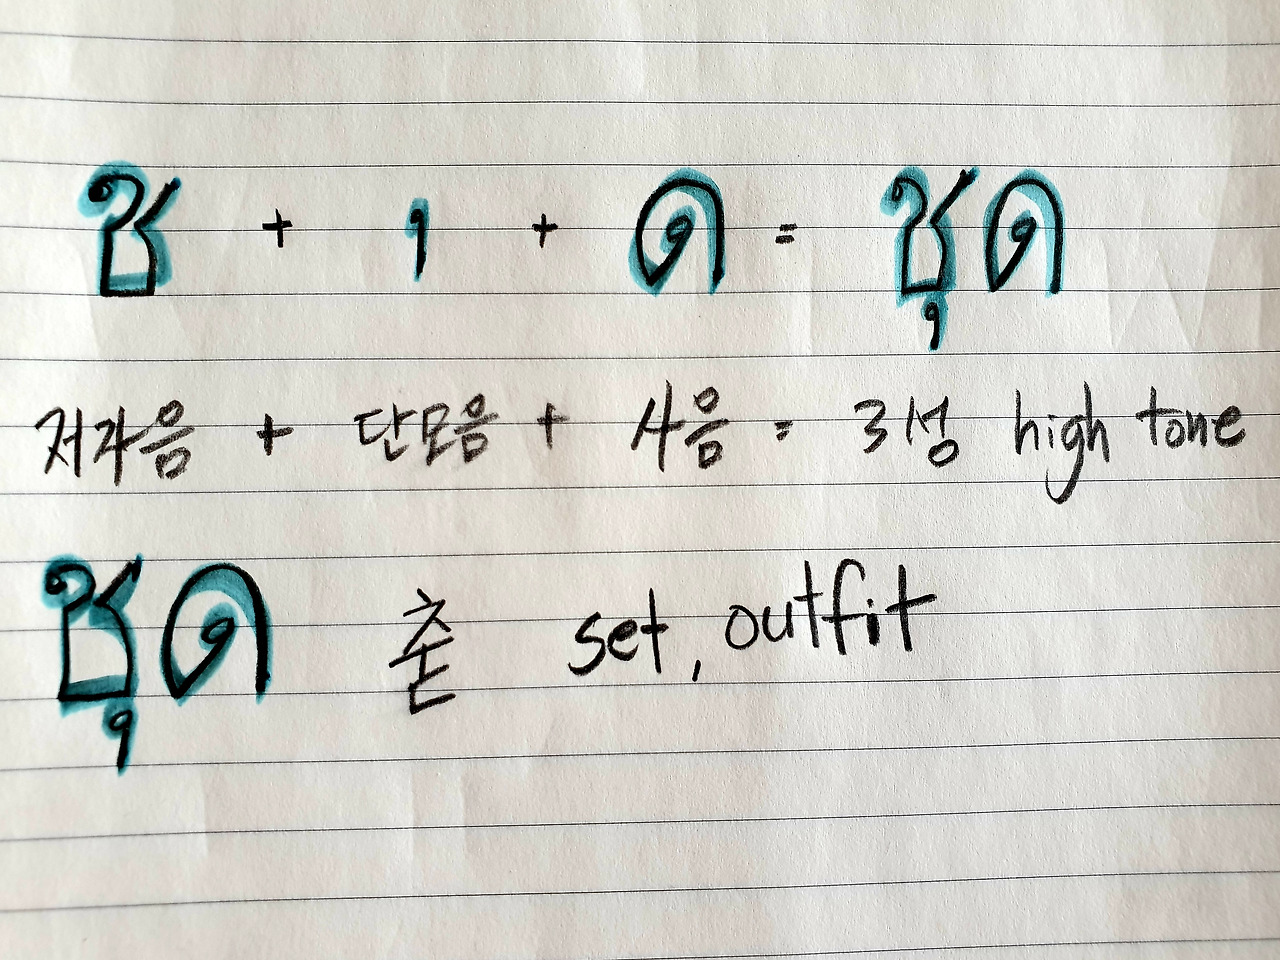 ช + ุ + ด = ชุด
저자음 + 단모음 + 사음 = 3성 high tone
ชุด 춛 set, outfit